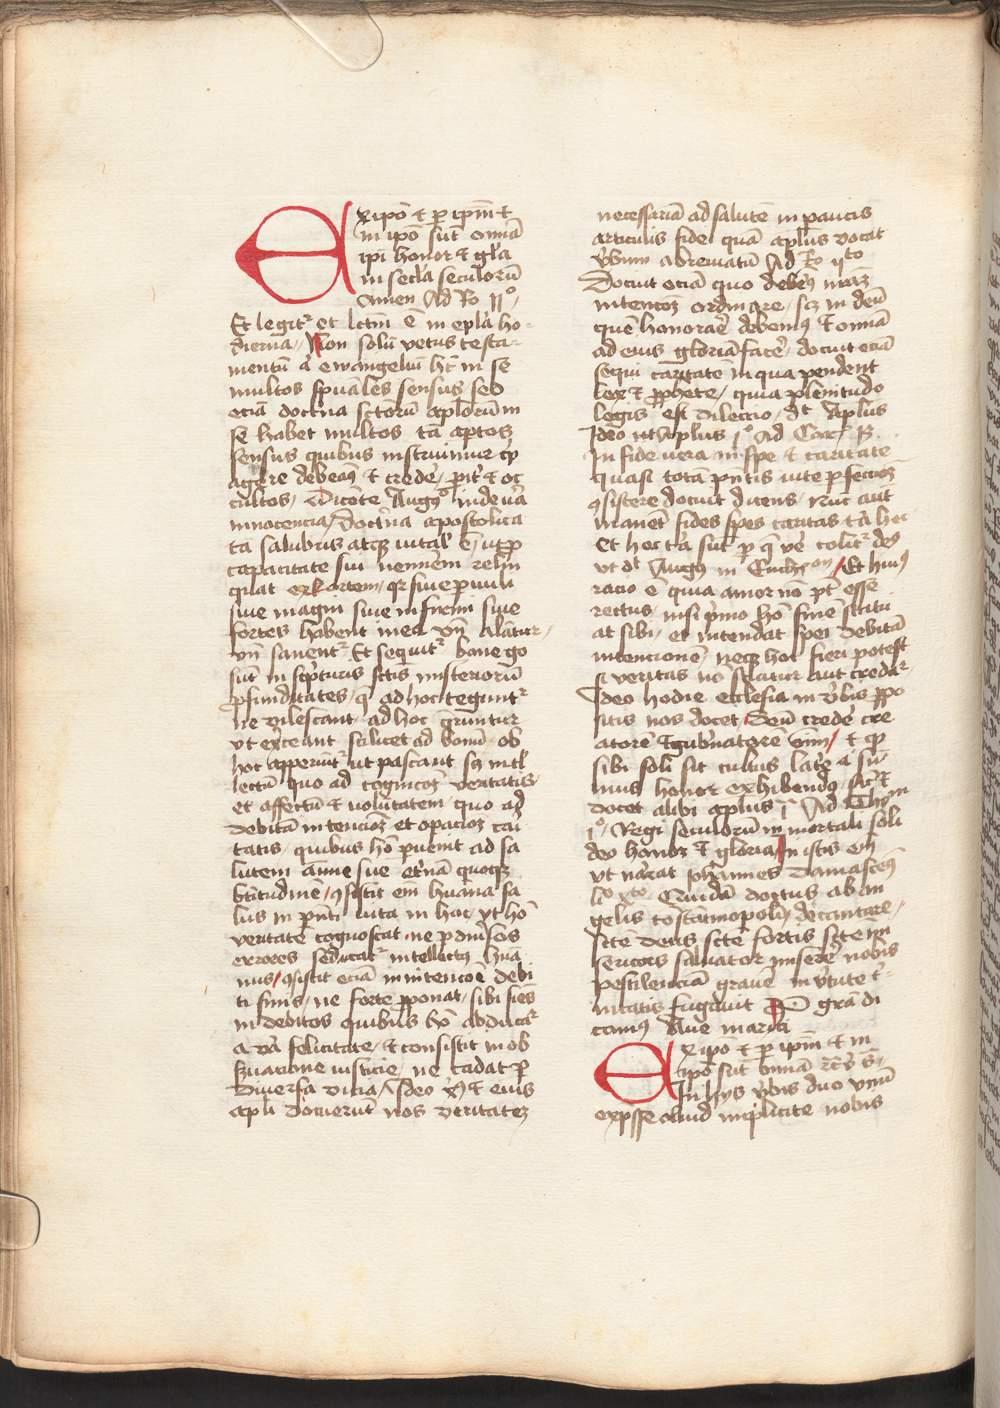 Ex ipō et ꝑ ipm̄ et
in ipō sūt omnīa
ipi honor et gl̄a
in sec̄la seculorū
Amen Ad Ro xjº
Et legitr̄ et lc̄tm̄ ē in epl̄a ho
dierna / Non solū vetus testa
mentū a ewangeliū hꝫ in se
multos spūales sensus seð
eciā doctīna sc̄torū apl̄orū in
se habet multos tā aptos
sensus quibus instruimur
agere debeam9 et credeꝰ
cultos / Dicēte Augº
innocencia / Doctīna apostolica
tā salubris atqꝫ vital' ē / vt ꝓ
capacitate sui neminem relin
quat exortem / qr siue puuli
siue magni siue infirmi siue
fortes habent in ea vn̄ alātur /
vn̄ sanentr̄ Et sequitr̄
sūt in sc̄pturis sc̄tis misteriorū
ꝓfunditates / q̄ ad hoc tegunt͛
ne vilescant / ad hoc q̄runtur
vt ex̄ceant scilicet ad bonū / ob
hoc apperiūt͛ ut pascant sꝫ intl̄
lectū quo ad cognicōꝫ veritatis /
et affectū et voluntatem / quo ad
debitā intencioꝫ et oꝑacioꝫ cāi
tatis / quibus hō ꝑuenit ad sa
lutem anīme sue et̄nā quoqꝫ
btītudinē / ꝯsistit em̄ huāna sa
lus in pn̄ti vita in hoc vt hō
veritatē cognoscat / ne ꝑ diūsos
errores seducat͛ intellectꝰ hūa
nus / ꝯsistit eciā in intencōe debi
ti finis / ne forte ꝓponat sibi fiēs
indebitos quibus abducat͛
a va felicitate / et consistit in ob
ẜuatione iusticie / ne cadat ꝑ
diuersa vicia / Ideo et eius
apl̄i docuerūt nos veritateꝫ
necessariā ad salutē in paucis
articulis fidei quā apl̄us vocat
vb̄um abreuiatū Ad Ro
Docuit eciā quo debem9
intencōꝫ ordinare / sꝫ in deū
quē honorare debem9 et omnīa
ad eius gloriā faceꝰ / docuit eciā
sequi caritatē in qua pendent
lex et ꝓphete / quia plenitudo
legis est dileccio / dt Apl̄us
Ideo Apl̄us jº ad Cor
In fide vera in spe et caritate
quasi totā pn̄tis vite ꝑfeccioꝫ
ꝯsistere docuit dicens / Nūc aūt
manet fides spes caritas tīa hec
Et hec tīa sūt ꝑ q̄ vē colit͛ deꝰ
vt dt Augꝰ in Et huiꝰ
racio ē quia amor nō pt̄ esse
rectus / nisi pīmo hō finē statu
at sibi / et intendat spei debitā
intencionē / neqꝫ hoc fieri potest
si veritas nō sciatur aut credat͛
Ideo hodie ecclesia in vb̄is ꝓpo
sitis nos docet / deū credeꝰ cre
atorē et gub̄natorē oīm / et qꝫ
sibi soli sit cultus latr̄e a sū
mus honor exhibendꝰ / sic̄
docet alibi aplus j Ad Thym
jº / Regi seculorū in mortali soli
deo honor et gloria / In istis em̄
vt narrat iohannes Damascenꝰ
Quidā doctus ab an
gelis decantare /
sc̄tē deus sc̄tē fortis sc̄tē im
saluator miserē nobis
pestilenciā grauē in vtute
fugauit
cam9 Aue maria
Ex ipō et ꝑ ipm̄ et in
ipō sūt omnīa
In hys vb̄is duo vnū
exp̄sse aliud implicite nobis